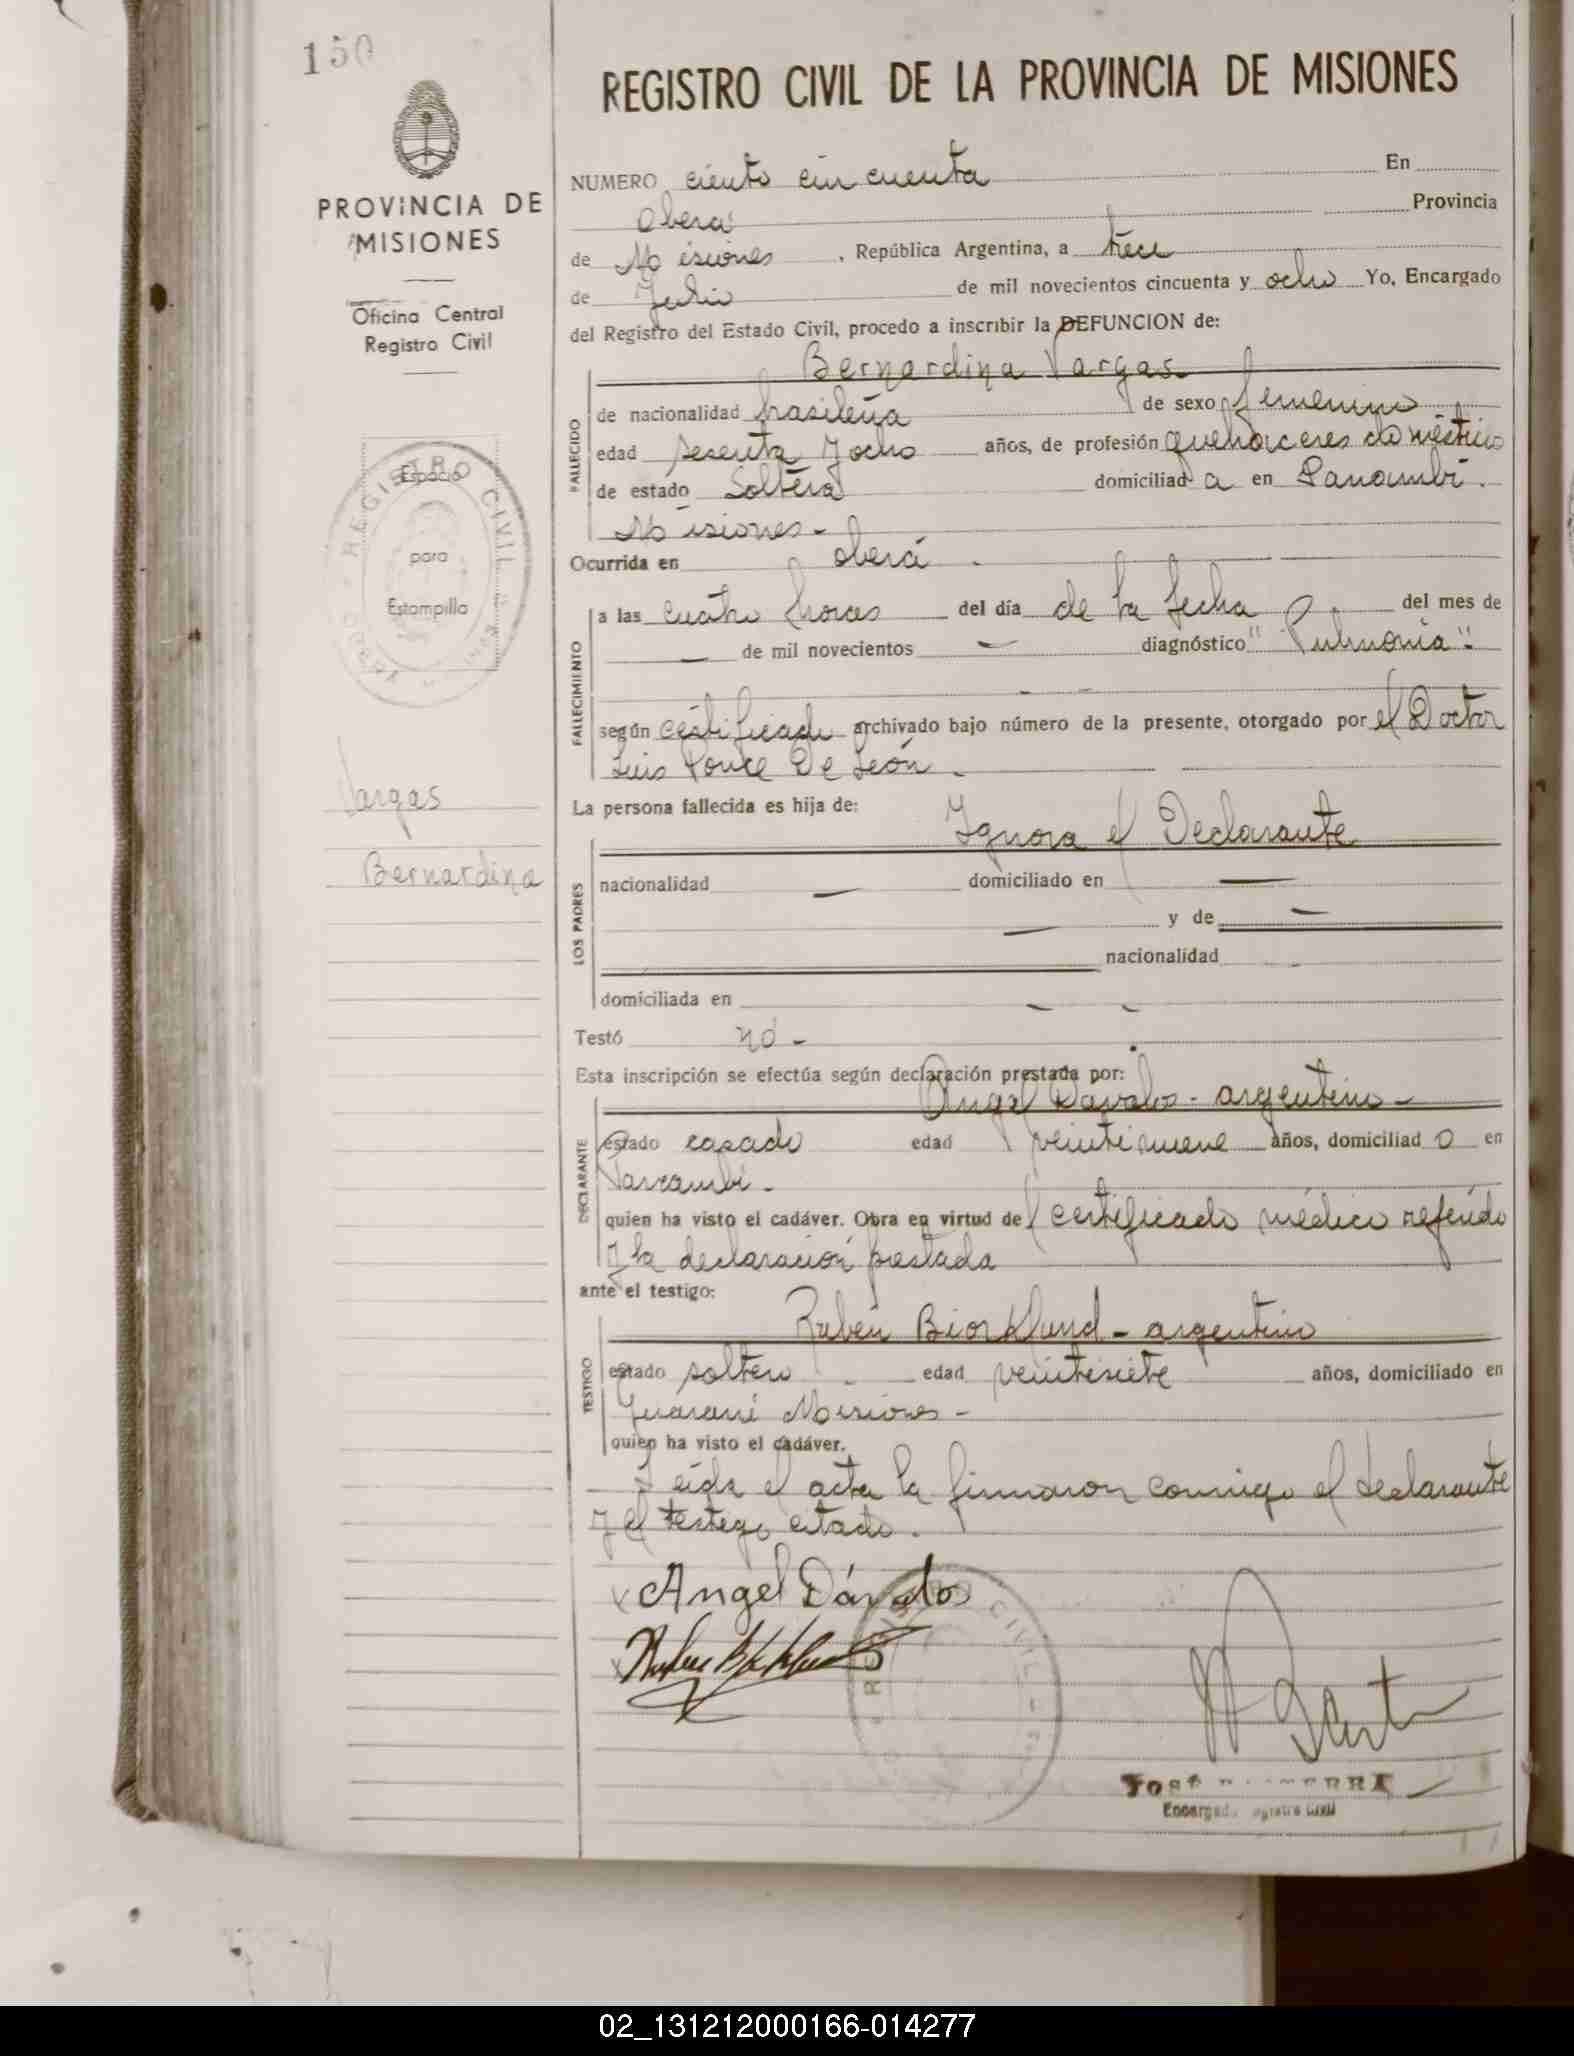 150
REGISTRO CIVIL DE LA PROVINCIA DE MISIONES
PROVINCIA DE
MISIONES
Oficina Central
Registro Civil
REGISTRO CIVIL
Espacio
para
Estampilla
Vargas
Bernardina
NUMERO ciento cincuenta En
Oberá Provincia
de Misiones, República Argentina, a trece
de Julio de mil novecientos cincuenta y ocho Yo, Encargado
del Registro del Estado Civil, procedo a inscribir la DEFUNCION de:
Bernardina Vargas
FALLECIDO
de nacionalidad brasileña de sexo femenino
edad sesenta y ocho años, de profesión quehaceres domésticos
de estado Soltera domiciliad a en Panambí.
Misiones-
Ocurrida en oberá.
FALLECIMIENTO
a las cuatro horas del día de la fecha del mes de
— de mil novecientos — diagnóstico "Pulmonía".
según certificado archivado bajo número de la presente, otorgado por el Doctor
Luis Ponce De León -
La persona fallecida es hija de:
Ignora el Declarante
LOS PADRES
nacionalidad — domiciliado en —
— y de —
nacionalidad
domiciliada en - -
Testó no -
Esta inscripción se efectúa según declaración prestada por:
Angel Dávalos - argentino -
DECLARANTE
estado casado edad veintinueve años, domiciliad o en
Panambí -
quien ha visto el cadáver. Obra en virtud del certificado médico referido
y la declaración prestada
ante el testigo:
Rubén Biorklund - argentino
TESTIGO
estado soltero - edad veintisiete años, domiciliado en
Guaraní Misiones -
quien ha visto el cadáver.
Leída el acta la firmaron conmigo el declarante
y el testigo citado.
Angel Dávalos
REGISTRO CIVIL
JOSE
Encargado Registro Civil
02_131212000166-014277